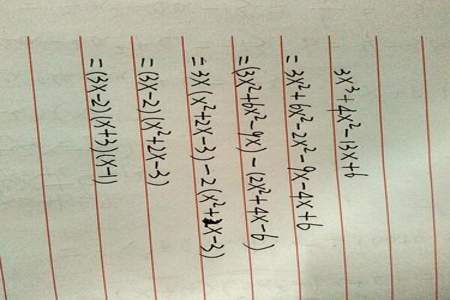 3x³+4x²-13x+6
=3x²+6x²-2x²-9x-4x+6
=(3x²+6x²-9x)-(2x²+4x-6)
=3x(x²+2x-3)-2(x²+2x-3)
=(3x-2)(x²+2x-3)
=(3x-2)(x+3)(x-1)